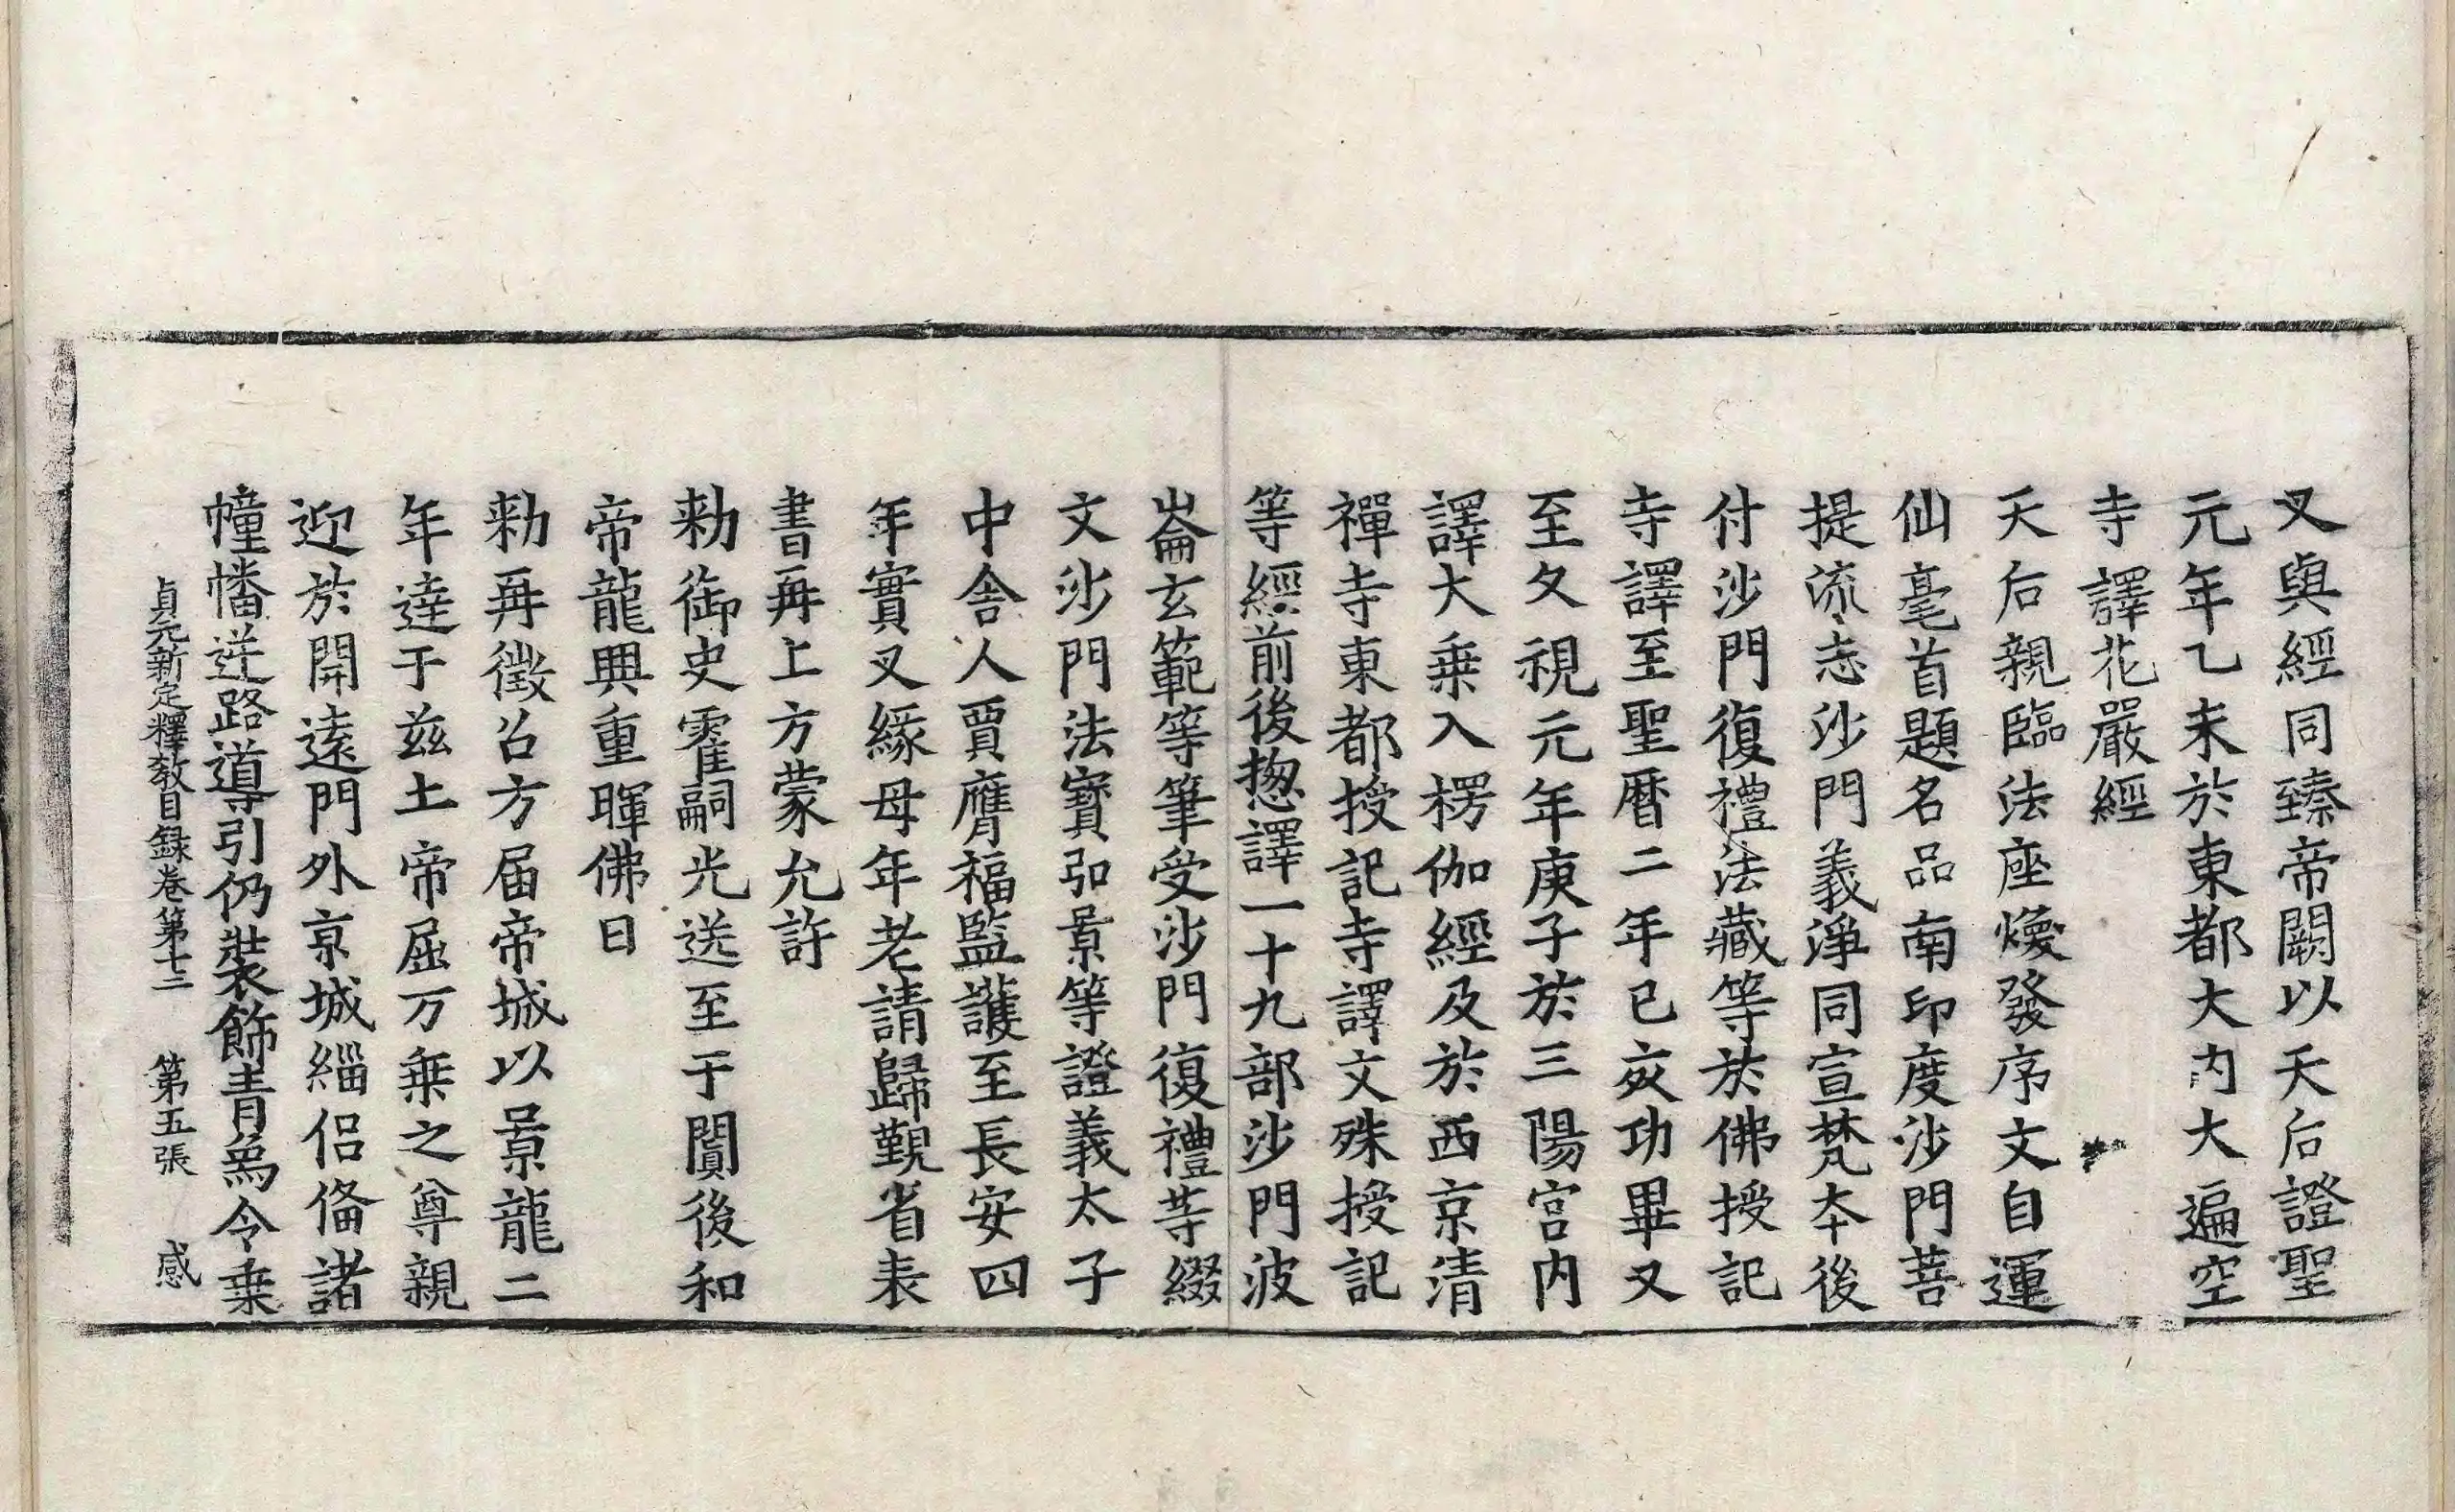 叉與經同臻帝闕以天后證聖
元年乙未於東都大內大遍空
寺譯花嚴經
天后親臨法座煥發序文自運
仙毫首題名品南印度沙門菩
提流志沙門義淨同宣梵本後
付沙門復禮法藏等於佛授記
寺譯至聖曆二年已亥功畢又
至久視元年庚子於三陽宮內
譯大乗入楞伽經及於西京清
禪寺東都授記寺譯文殊授記
等經前後揔譯一十九部沙門波
崙玄範等筆受沙門復禮等綴
文沙門法寶弘景等證義太子
中舍人賈膺福監護至長安四
年實叉緣母年老請歸覲省表
書再上方蒙允許
勑御史霍嗣光送至于闐後和
帝龍興重暉佛日
勑再徵召方届帝城以景龍二
年達于兹土帝屈万乗之尊親
迎於開遠門外京城緇侶俻諸
幢幡逆路導引仍裝飾青爲令乗
貞元新定釋教目録卷第十三 第五張 感